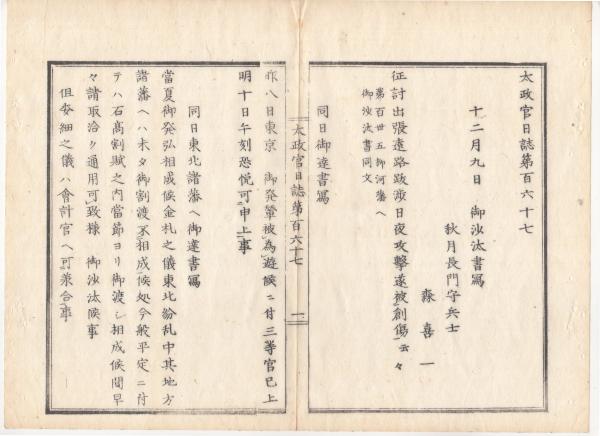 太政官日誌第百六十七
十二月九日 御沙汰書寫
秋月長門守兵士
森喜一
征討出張遠路跋渉日夜攻撃遂被創傷云々
第百廿五柳河藩ヘ
御沙汰書同文
同日御達書寫
太政官日誌第百六十七 一
昨八日東京 御発輦被為遊候ニ付三等官已上
明十日午刻恐悦可申上事
同日東北諸藩ヘ御達書寫
當夏御発弘相成候金札之儀東北紛乱中其地方
諸藩ヘハ未タ御割渡不相成候処今般平定ニ付
テハ石高割賦之内當節ヨリ御渡シ相成候間早
々諸取洽ク通用可致様 御沙汰候事
但委細之儀ハ會計官ヘ可承合事